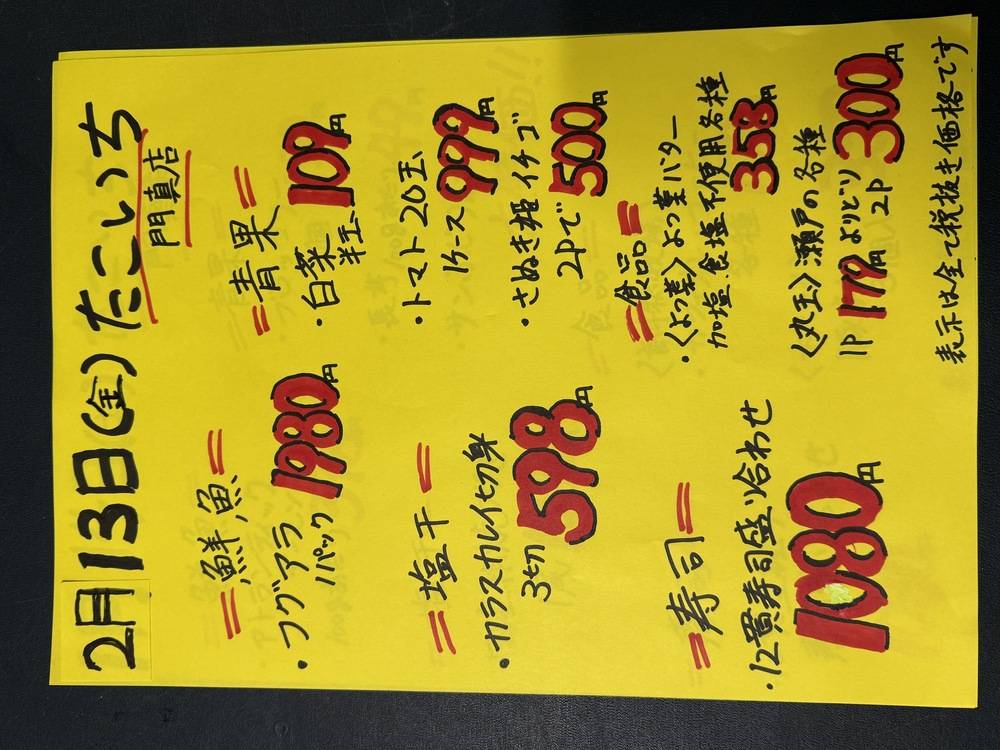 2月13日(金) たこいち
門真店
=鮮魚=
・フグアラ
1パック 1980円
=塩干=
・カラスカレイ切身
3切 598円
=寿司=
・12貫寿司盛り合わせ
1080円
=青果=
・白菜
半玉 109円
・トマト20玉
1ケース 999円
・さぬき姫イチゴ
2Pで 500円
=食品=
・<よつ葉>よつ葉バター
加塩、食塩不使用各種
358円
<丸玉>瀬戸の各種
1P 179円よりどり2P 300円
表示は全て税抜き価格です